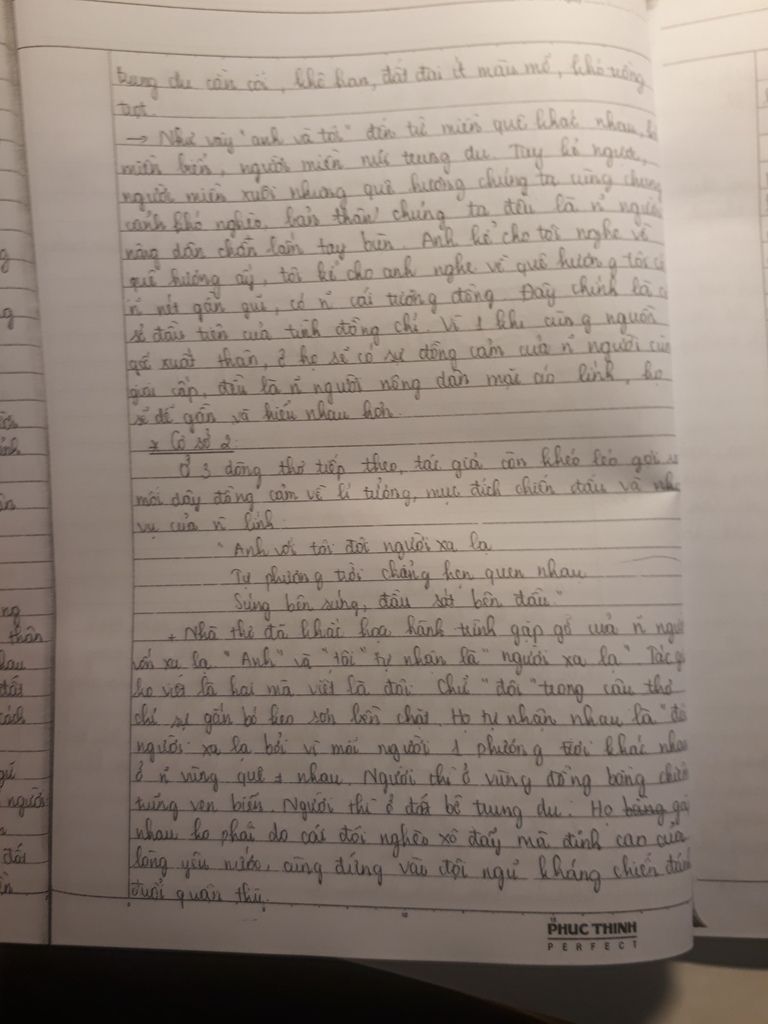 trung du cằn cỗi, khô han, đất đai ít màu mỡ, khó trồng
trọt.
→ Như vậy "anh và tôi" đến từ miền quê khác nhau,
miền biển, người miền núi trung du. Tuy kẻ ngược,
người miền xuôi nhưng quê hương chúng ta cùng chung
cảnh khó nghèo, bản thân chúng ta đều là n~ người
nông dân chân lấm tay bùn. Anh kể cho tôi nghe về
quê hương ấy, tôi kể cho anh nghe về quê hương tôi có
n~ nét gần gũi, có n~ cái tương đồng. Đây chính là cơ
sở đầu tiên của tình đồng chí. Vì 1 khi cùng nguồn
gốc xuất thân, ở họ sẽ có sự đồng cảm của n~ người cùng
giai cấp, đều là n~ người nông dân mặc áo lính, họ
sẽ dễ gần và hiểu nhau hơn.
* Cơ sở 2:
Ở 3 dòng thơ tiếp theo, tác giả còn khéo léo gợi
mối dây đồng cảm về lí tưởng, mục đích chiến đấu và
vụ của n~ lính:
"Anh với tôi đôi người xa lạ
Tự phương trời chẳng hẹn quen nhau
Súng bên súng, đầu sát bên đầu"
+ Nhà thơ đã khắc họa hành trình gặp gỡ của n~ người
vốn xa lạ. "Anh" và "tôi" tự nhận là "người xa lạ". Tác
ko viết là hai mà viết là đôi. Chữ "đôi" trong câu thơ
chỉ sự gắn bó keo sơn bền chặt. Họ tự nhận nhau là "đôi
người xa lạ bởi vì mỗi người 1 phương trời khác nhau
ở n~ vùng quê ≠ nhau. Người thì ở vùng đồng bằng chiêm
trũng ven biển. Người thì ở đất bề trung du. Họ
nhau ko phải do cái đói nghèo xô đẩy mà đỉnh cao của
lòng yêu nước, cùng đứng vào đội ngũ kháng chiến đánh
đuổi quân thù.
PHUC THINH
PERFECT